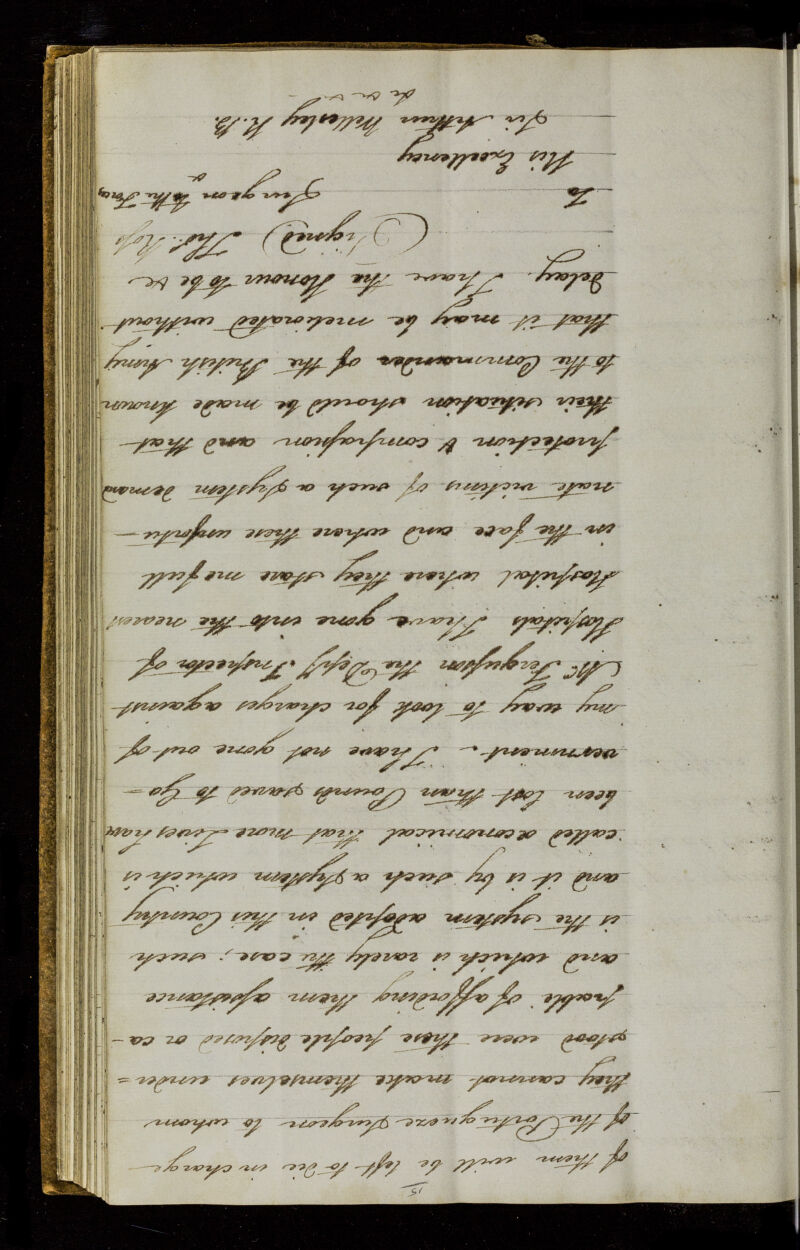 15
of them will be left to die in charge
of the Portugueze Surgeon to whom
they cannot make themselves under=
stood were these people disposed or ca-
pable of affording them assistance
and which is rarely the case; such
is the system adopted in this Country
and it is by such a System which is
called œconomical that more Lives have
been lost than Pounds saved to Go=
vernment. I have not gone out of
my way to look for charges against
Mr. Fergusson the Depy. Inspector of
Hospitals I have gone into the nearest
Hospital where they stare me full
in the face and where these unfortu-
nate victims of such a System demand
protection & compassion and that
their situation should be made known
to the Commander of the British Army
that it may be meliorated without
delay. I have the Honour to be &c
(Signed) Thos. Ross
Surgeon to the Forces
To
His Excellency
Sir Arthur Wellesley K.B.
&c &c &c